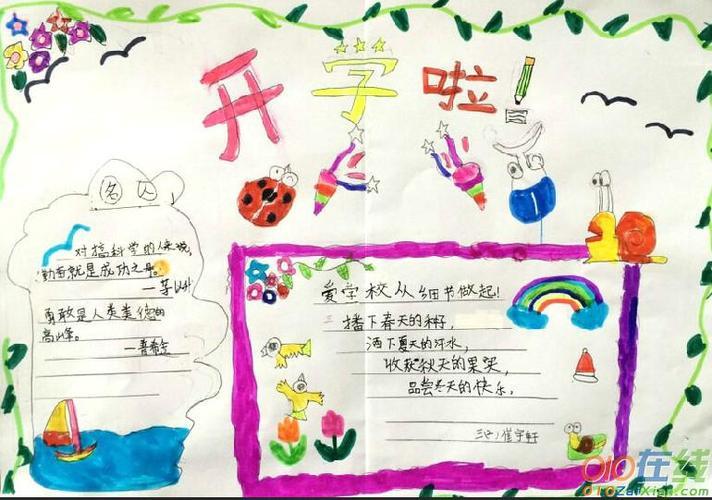 开学啦!
对搞科学的人来说,
勤奋就是成功之母。
—茅以升
勇敢是人类美德的
高峰。
—普希金
爱学校从细节做起!
播下春天的种子,
洒下夏天的汗水,
收获秋天的果实
品尝冬天的快乐,
崔宇轩
010在线
010ZaiXian.com